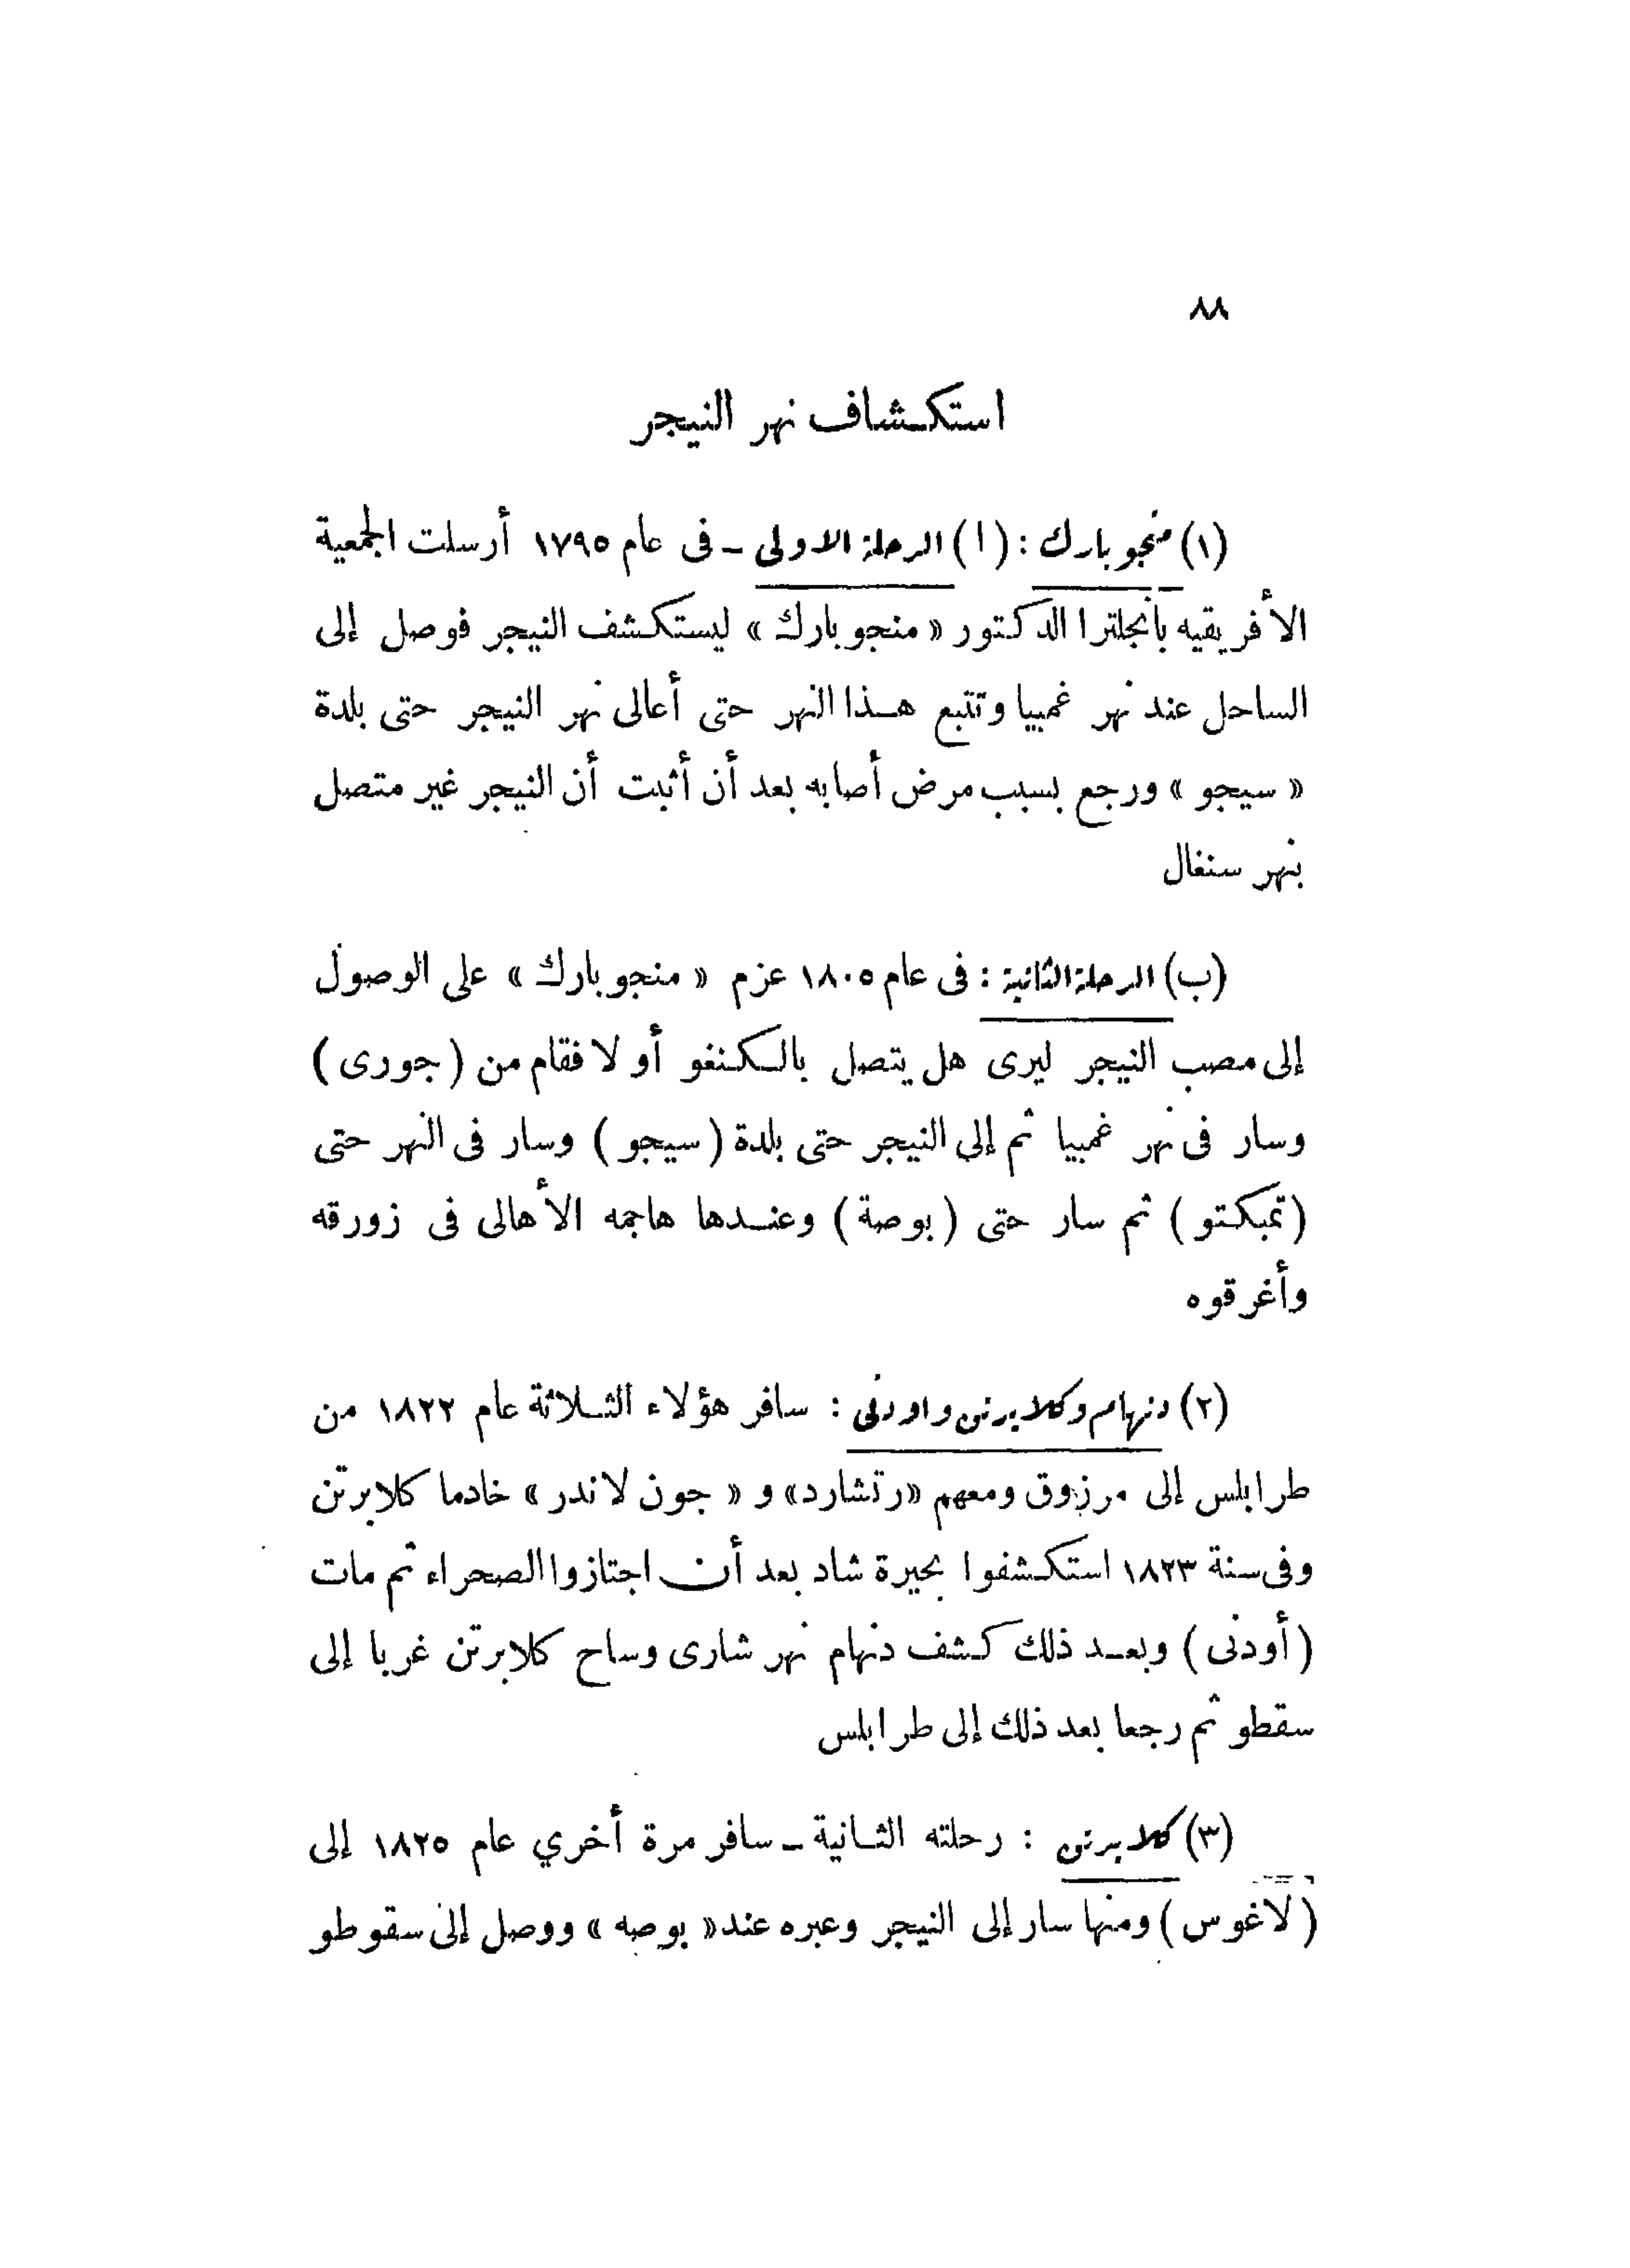 ٨٨
استكشاف نهر النيجر
(١) منجو بارك : (ا) الرحلة الاولى ـ فى عام ١٧٩٥ أرسلت الجمعية
الأفريقيه بأنجلترا الدكتور « منجو بارك » ليستكشف النيجر فوصل إلى
الساحل عند نهر غمبيا وتتبع هذا النهر حتى أعالى نهر النيجر حتى بلدة
« سيجو » ورجع بسبب مرض أصابه بعد أن أثبت أن النيجر غير متصل
بنهر سنغال
(ب) الرحلة الثانية : فى عام ١٨٠٥ عزم « منجو بارك » على الوصول
إلى مصب النيجر ليرى هل يتصل بالكنغو أو لا فقام من (جورى)
وسار فى نهر غمبيا ثم إلى النيجر حتى بلدة (سيجو) وسار فى النهر حتى
(تمبكتو) ثم سار حتى (بوصة) وعندها هاجمه الأهالى فى زورقه
وأغرقوه
(٢) دنهام وكلابرتن واودنى : سافر هؤلاء الثلاثة عام ١٨٢٢ من
طرابلس إلى مرزوق ومعهم «رتشارد» و « جون لاندر » خادما كلابرتن
وفى سنة ١٨٢٣ استكشفوا بحيرة شاد بعد أن اجتازوا الصحراء ثم مات
(أودنى) وبعد ذلك كشف دنهام نهر شارى وساح كلابرتن غربا إلى
سقطو ثم رجعا بعد ذلك إلى طرابلس
(٣) كلابرتن : رحلته الثانية ـ سافر مرة أخري عام ١٨٢٥ إلى
(لاغوس) ومنها سار إلى النيجر وعبره عند « بوصه » ووصل إلى سقوطو